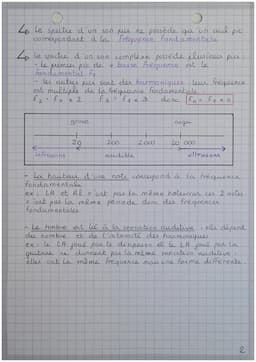 ↳ Le spectre d'un son pur ne possède qu'un seul pic
correspondant à la fréquence fondamentale.
↳ Le spectre d'un son complexe possède plusieurs pics :
- le premier pic de + basse fréquence est le
fondamental f₁
- les autres pics sont des harmoniques leur fréquence
est multiple de la fréquence fondamentale
f₂ = f₁ x 2 f₃ = f₁ x 3 donc fₙ = f₁ x n
grave aigu
20 200 2 000 20 000
infrasons audible ultrasons
- La hauteur d'une note correspond à la fréquence
fondamentale
ex : LA et RE n'ont pas la même hauteur, ces 2 notes
n'ont pas la même période donc des fréquences
fondamentales
- Le timbre est lié à la sensation auditive : elle dépend
du nombre et de l'intensité des harmoniques
ex : le LA joué par le diapason et le LA joué par la
guitare ne donnent pas la même sensation auditive :
elles ont la même fréquence mais une forme différente.
2